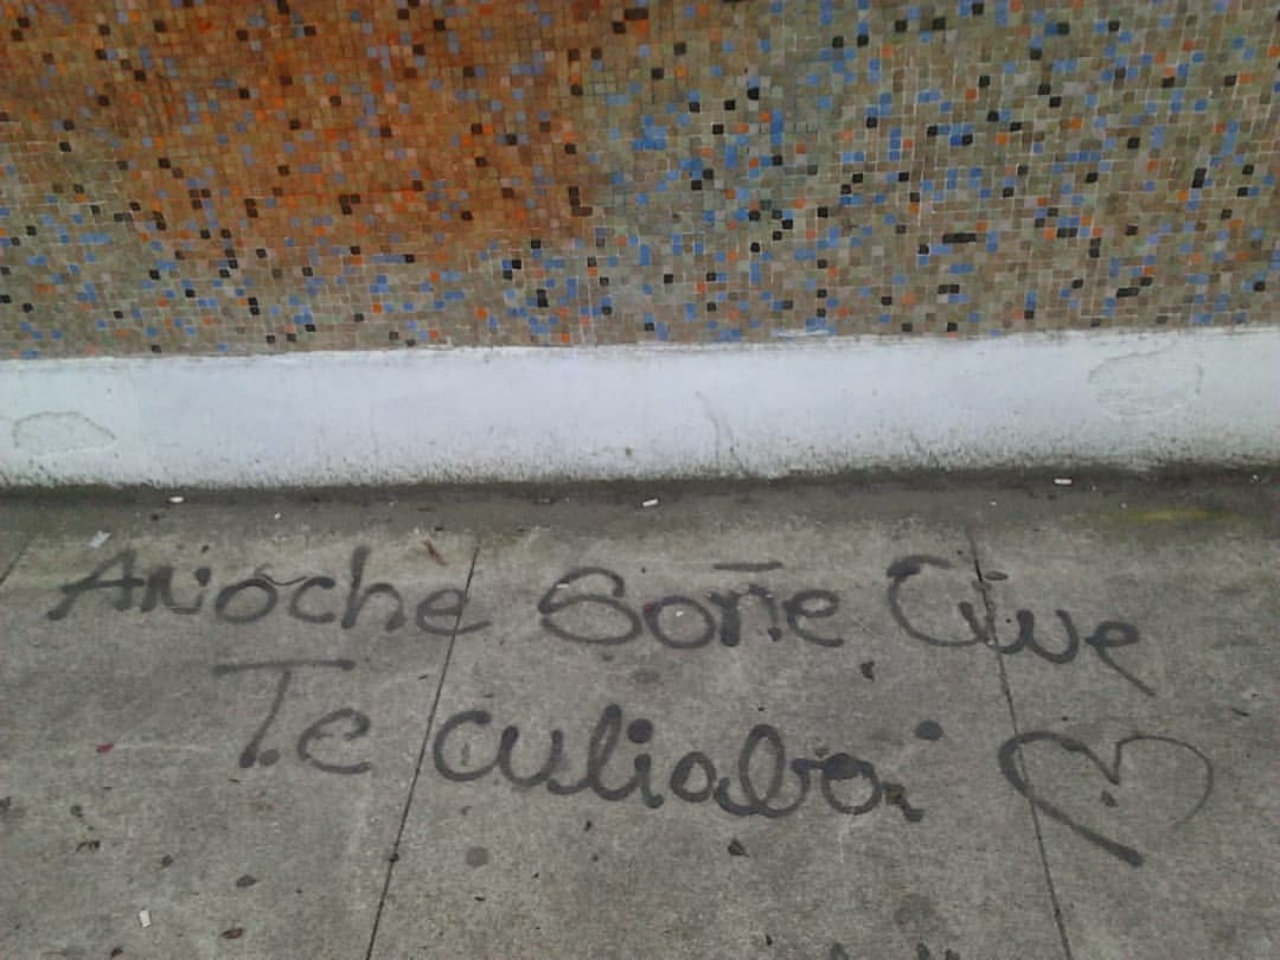 Anoche Soñe Que
Te culiaba